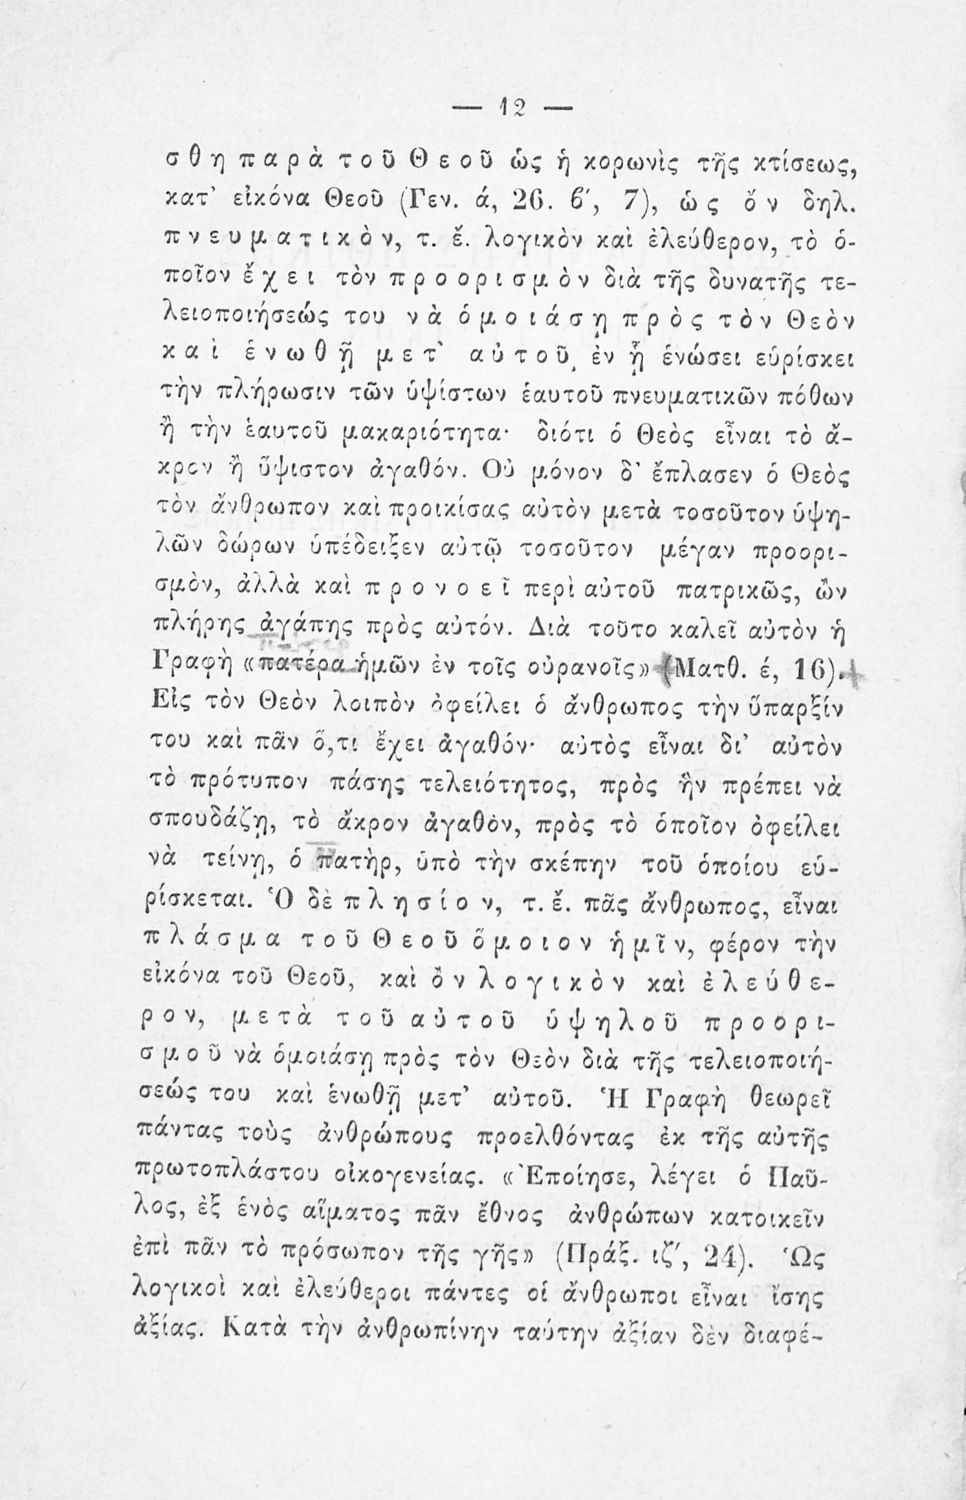 — 12 —
σθη παρὰ τοῦ Θεοῦ ὡς ἡ κορωνὶς τῆς κτίσεως,
κατ' εἰκόνα Θεοῦ (Γεν. ά, 26. ϐ', 7), ὡς ὄν δηλ.
πνευματικὸν, τ. ἔ. λογικὸν καὶ ἐλεύθερον, τὸ ὁ-
ποῖον ἔχει τὸν προορισμὸν διὰ τῆς δυνατῆς τε-
λειοποιήσεώς του νὰ ὁμοιάσῃ πρὸς τὸν Θεὸν
καὶ ἑνωθῇ μετ' αὐτοῦ, ἐν ᾗ ἑνώσει εὑρίσκει
τὴν πλήρωσιν τῶν ὑψίστων ἑαυτοῦ πνευματικῶν πόθων
ἢ τὴν ἑαυτοῦ μακαριότητα· διότι ὁ Θεὸς εἶναι τὸ ἄ-
κρον ἢ ὕψιστον ἀγαθόν. Οὐ μόνον δ' ἔπλασεν ὁ Θεὸς
τὸν ἄνθρωπον καὶ προικίσας αὐτὸν μετὰ τοσοῦτον ὑψη-
λῶν δώρων ὑπέδειξεν αὐτῷ τοσοῦτον μέγαν προορι-
σμὸν, ἀλλὰ καὶ προνοεῖ περὶ αὐτοῦ πατρικῶς, ὢν
πλήρης ἀγάπης πρὸς αὐτόν. Διὰ τοῦτο καλεῖ αὐτὸν ἡ
Γραφὴ «πατέρα ἡμῶν ἐν τοῖς οὐρανοῖς» (Ματθ. έ, 16).
Εἰς τὸν Θεὸν λοιπὸν ὀφείλει ὁ ἄνθρωπος τὴν ὕπαρξίν
του καὶ πᾶν ὅ,τι ἔχει ἀγαθόν· αὐτὸς εἶναι δι' αὐτὸν
τὸ πρότυπον πάσης τελειότητος, πρὸς ἣν πρέπει νὰ
σπουδάζῃ, τὸ ἄκρον ἀγαθὸν, πρὸς τὸ ὁποῖον ὀφείλει
νὰ τείνῃ, ὁ πατὴρ, ὑπὸ τὴν σκέπην τοῦ ὁποίου εὑ-
ρίσκεται. Ὁ δὲ πλησίον, τ. ἔ. πᾶς ἄνθρωπος, εἶναι
πλάσμα τοῦ Θεοῦ ὅμοιον ἡμῖν, φέρον τὴν
εἰκόνα τοῦ Θεοῦ, καὶ ὂν λογικὸν καὶ ἐλεύθε-
ρον, μετὰ τοῦ αὐτοῦ ὑψηλοῦ προορι-
σμοῦ νὰ ὁμοιάσῃ πρὸς τὸν Θεὸν διὰ τῆς τελειοποιή-
σεώς του καὶ ἑνωθῇ μετ' αὐτοῦ. Ἡ Γραφὴ θεωρεῖ
πάντας τοὺς ἀνθρώπους προελθόντας ἐκ τῆς αὐτῆς
πρωτοπλάστου οἰκογενείας. «Ἐποίησε, λέγει ὁ Παῦ-
λος, ἐξ ἑνὸς αἵματος πᾶν ἔθνος ἀνθρώπων κατοικεῖν
ἐπὶ πᾶν τὸ πρόσωπον τῆς γῆς» (Πράξ. ιζ', 24). Ὡς
λογικοὶ καὶ ἐλεύθεροι πάντες οἱ ἄνθρωποι εἶναι ἴσης
ἀξίας. Κατὰ τὴν ἀνθρωπίνην ταύτην ἀξίαν δὲν διαφέ-